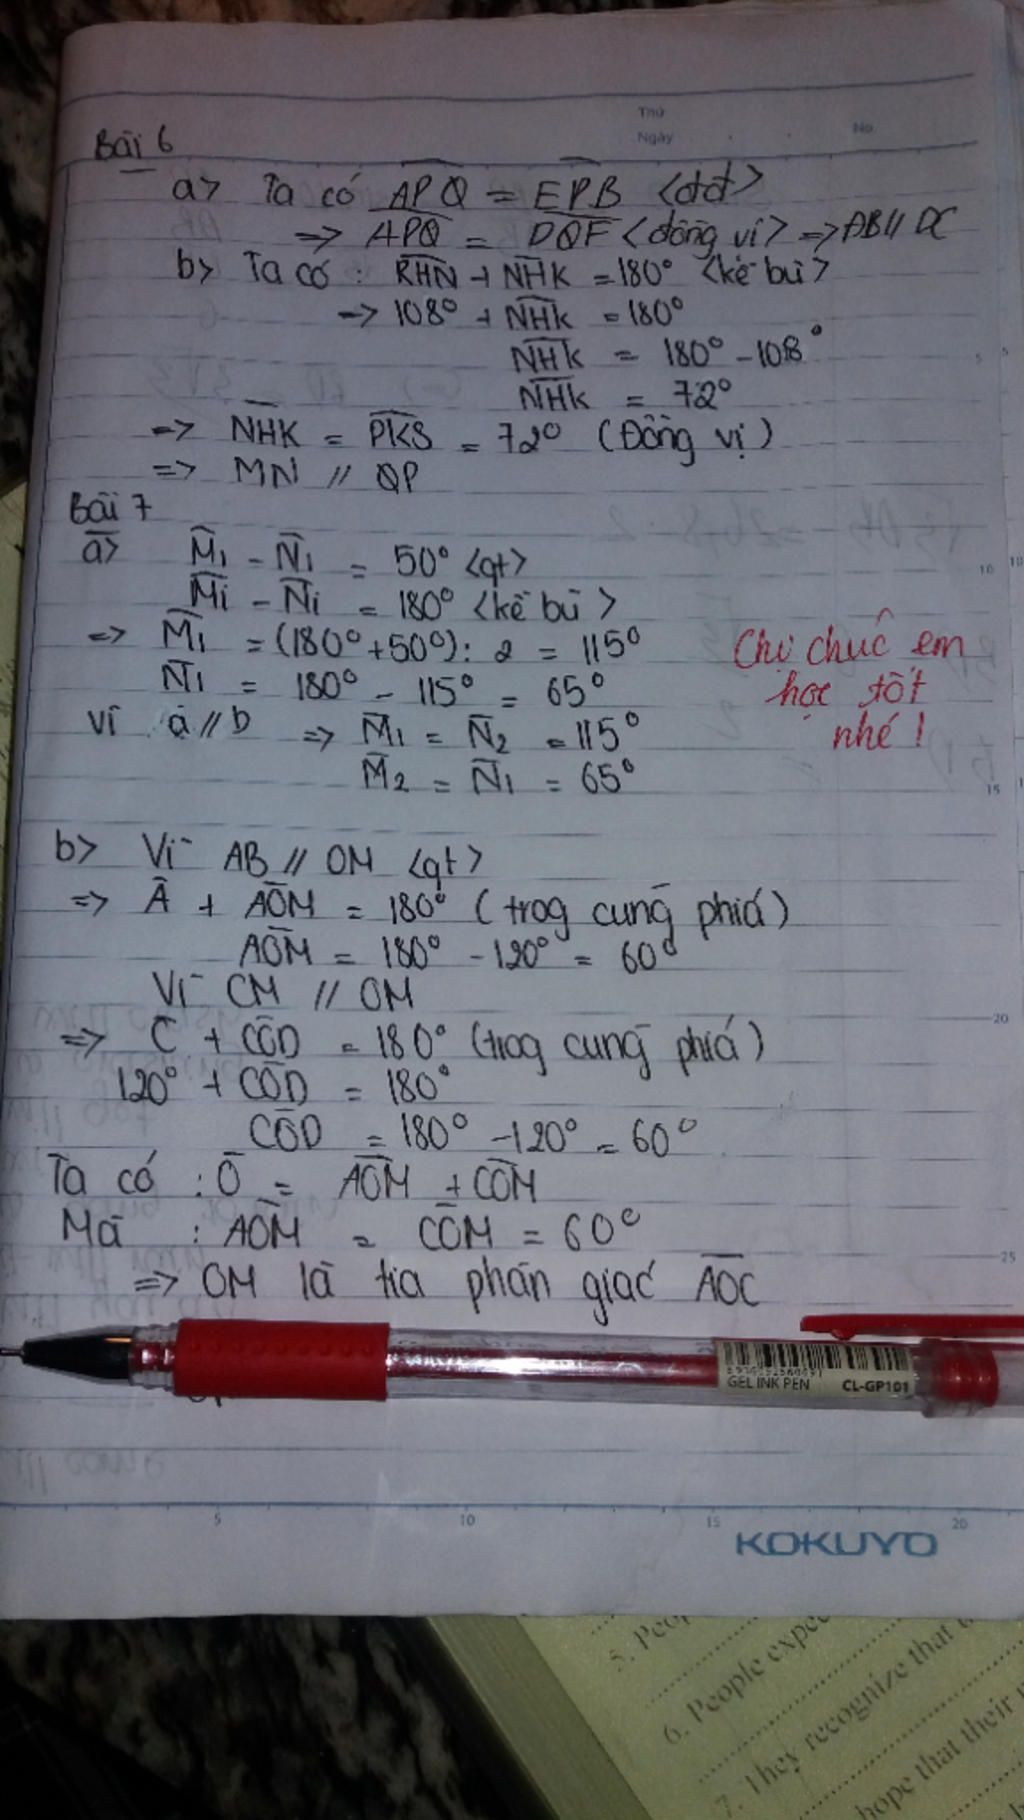 Thứ
Ngày
No.
Bài 6
a> Ta có APQ = EPB <đđ>
=> APQ = DQF <đồng vị> => AB // DC
b> Ta có : RHN + NHK = 180° <kề bù>
=> 108° + NHK = 180°
NHK = 180° - 108°
NHK = 72°
=> NHK = PKS = 72° (Đồng vị)
=> MN // QP
Bài 7
a> M1 - N1 = 50° <gt>
Mi - Ni = 180° <kề bù>
=> M1 = (180° + 50°) : 2 = 115°
N1 = 180° - 115° = 65°
Vì a // b => M1 = N2 = 115°
M2 = N1 = 65°
Chị chúc em
học tốt
nhé !
b> Vì AB // OM <gt>
=> A + AOM = 180° (trog cùng phiá)
AOM = 180° - 120° = 60°
Vì CM // OM
=> C + COD = 180° (trog cùng phiá)
120° + COD = 180°
COD = 180° - 120° = 60°
Ta có : O = AOM + COM
Mà : AOM = COM = 60°
=> OM là tia phân giác AOC
GEL INK PEN CL-GP101
5 10 15 20
KOKUYO
5. Peop
6. People expec
7. They recognize that
hope that their